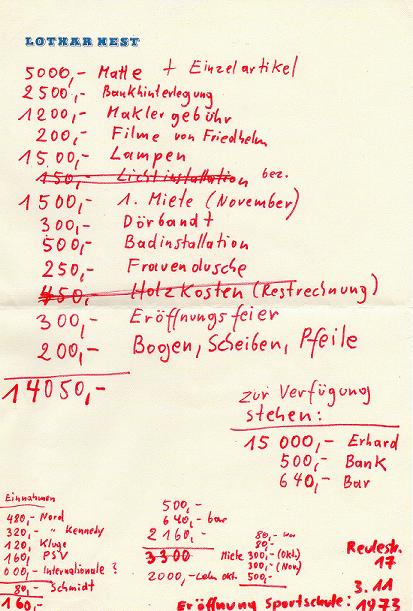 LOTHAR NEST
5000,- Matte + Einzelartikel
2500,- Bankhinterlegung
1200,- Maklergebühr
200,- Filme von Friedhelm
1500,- Lampen
150,- Lichtinstallation bez.
1500,- 1. Miete (November)
300,- Dörbandt
500,- Badinstallation
250,- Frauendusche
450,- Holz Kosten (Restrechnung)
300,- Eröffnungsfeier
200,- Bogen, Scheiben, Pfeile
14050,-
zur Verfügung
stehen:
15 000,- Erhard
500,- Bank
640,- Bar
Einnahmen
480,- Nord
320,- " Kennedy
120, Kluge
160, PSV
000,- Internationale ?
80,- Schmidt
160,-
500,-
640,- bar
2160,-
3300
2000,- Lohn Okt.
80,-
80,-
Miete 300,- (Okt.)
300,- (Nov.)
500,-
Reulestr.
17
3.11
Eröffnung Sportschule: 1973